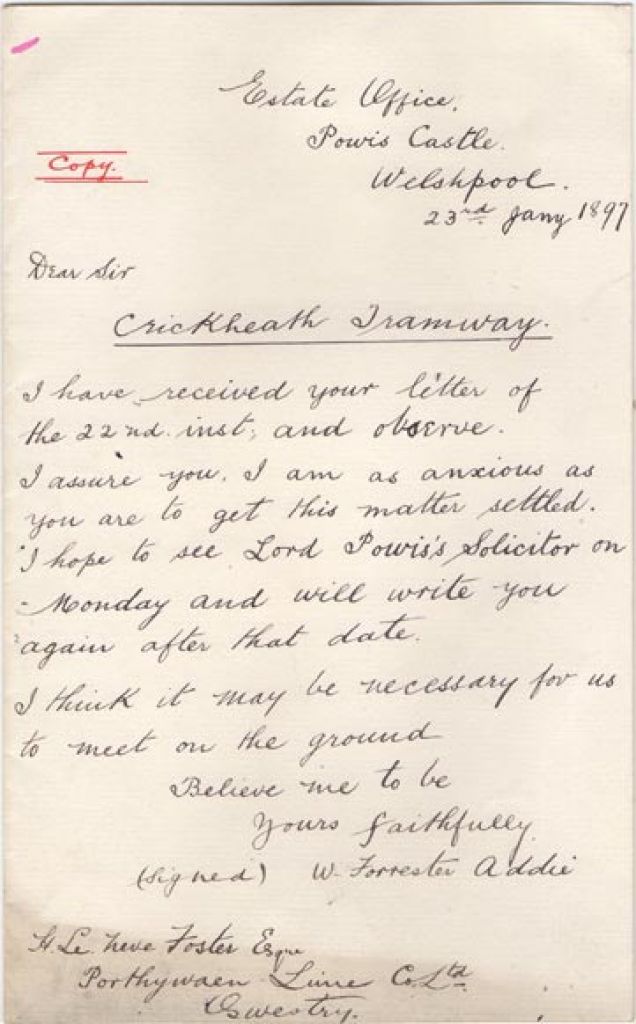 Estate Office,
Powis Castle.
Copy.
Welshpool.
23rd Jany 1897
Dear Sir
Crickheath Tramway.
I have received your letter of
the 22nd. inst, and observe.
I assure you, I am as anxious as
you are to get this matter settled.
I hope to see Lord Powis's Solicitor on
Monday and will write you
again after that date.
I think it may be necessary for us
to meet on the ground
Believe me to be
Yours faithfully
(signed) W. Forrester Addie
H. Le. Neve Foster Esqre
Porthywaen Lime Co. Ltd
Oswestry.